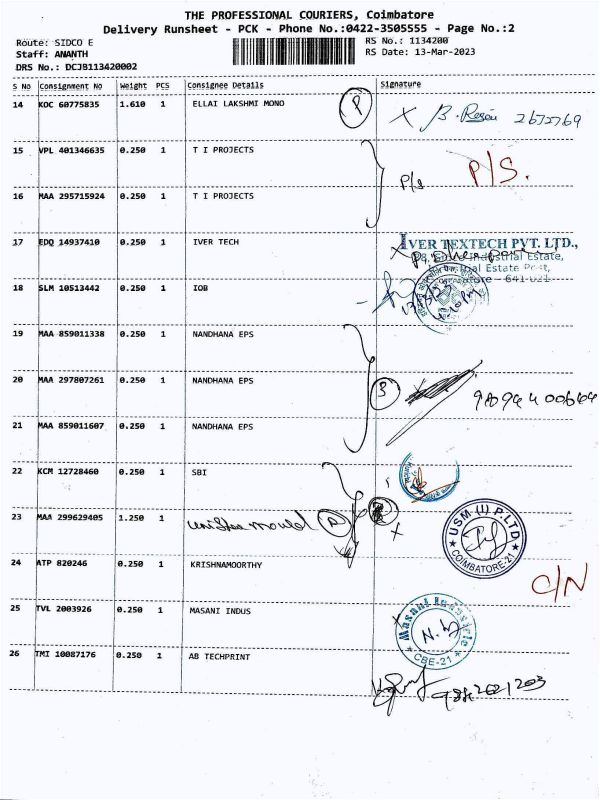 THE PROFESSIONAL COURIERS, Coimbatore
Delivery Runsheet - PCK - Phone No.:0422-3505555 - Page No.:2
Route: SIDCO E
RS No.: 1134200
Staff: ANANTH
RS Date: 13-Mar-2023
DRS No.: DCJB113420002
S No Consignment No Weight PCS Consignee Details Signature
14 KOC 60775835 1.610 1 ELLAI LAKSHMI MONO P
15 VPL 401346635 0.250 1 T I PROJECTS
P/s P/S.
16 MAA 295715924 0.250 1 T I PROJECTS
17 EDQ 14937410 0.250 1 IVER TECH
IVER TEXTECH PVT. LTD.,
Industrial Estate,
Estate Post,
641-021
18 SLM 10513442 0.250 1 IOB
19 MAA 859011338 0.250 1 NANDHANA EPS
20 MAA 297807261 0.250 1 NANDHANA EPS 3
21 MAA 859011607 0.250 1 NANDHANA EPS
22 KCM 12728460 0.250 1 SBI
23 MAA 299629405 1.250 1 mould
USM (I) P LTD
COIMBATORE-21
24 ATP 820246 0.250 1 KRISHNAMOORTHY
C/N
25 TVL 2003926 0.250 1 MASANI INDUS
Masani Industrie
CBE-21
26 TMI 10087176 0.250 1 AB TECHPRINT